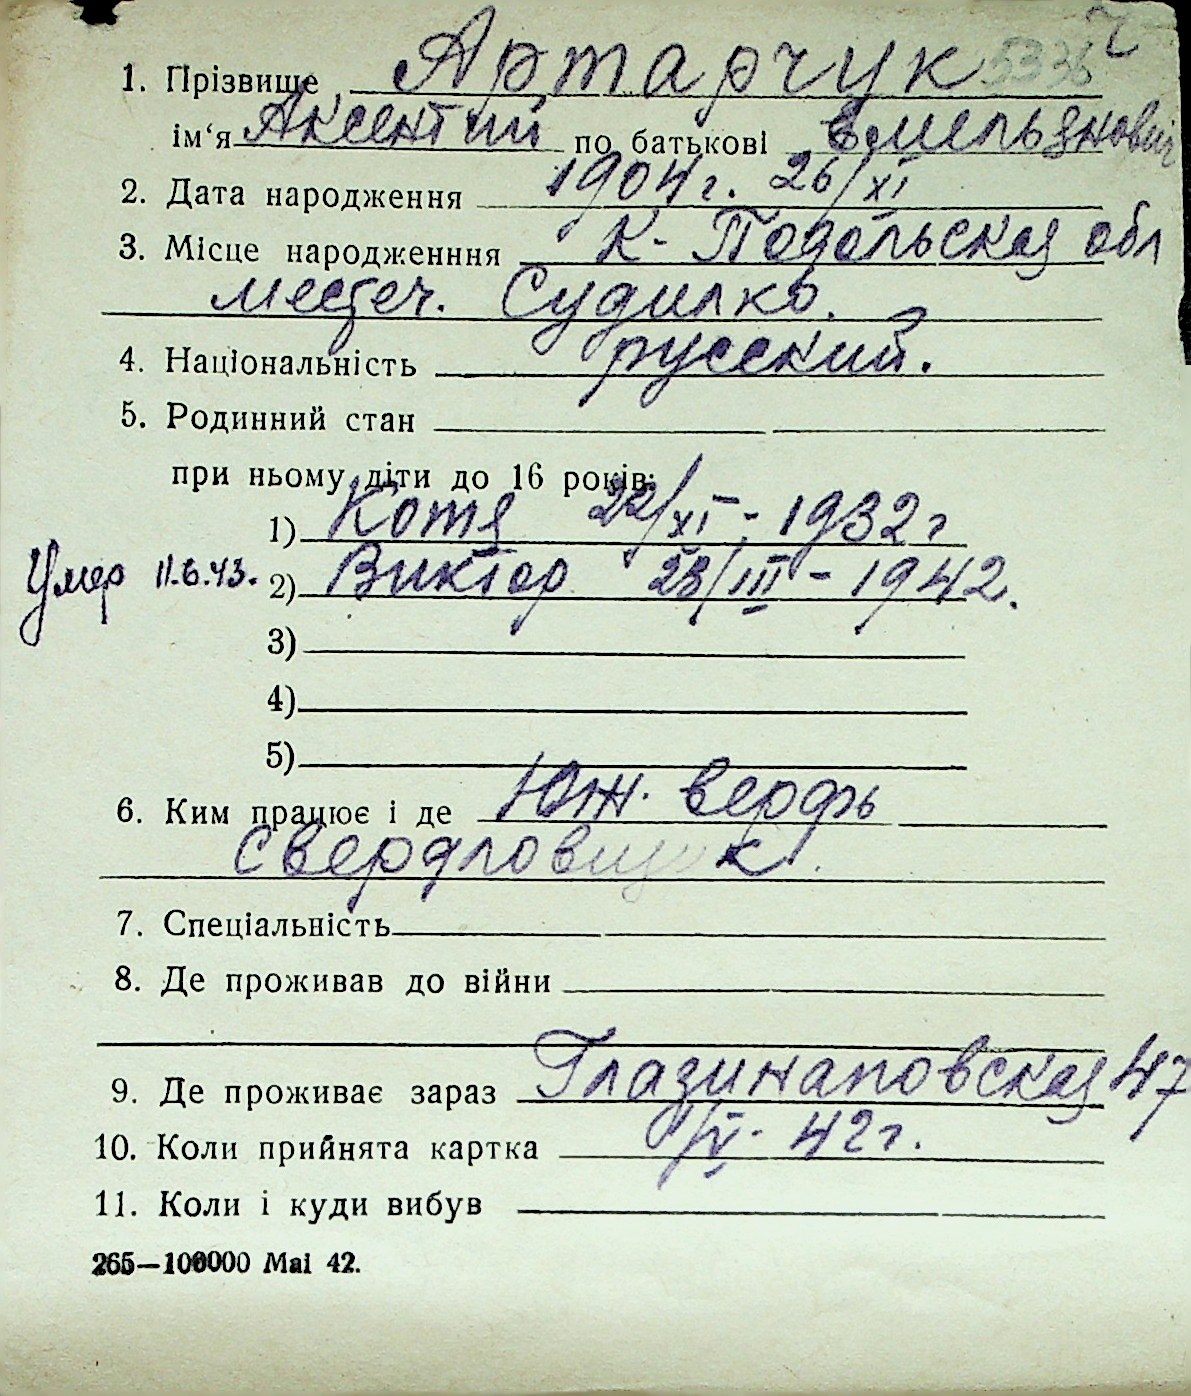 1. Прізвище Артарчук 5335 ч
ім'я Аксентий по батькові Емельянович
2. Дата народження 1904 г. 26/XI
3. Місце народженння К-Подольская обл
местеч. Судилко.
4. Національність русский.
5. Родинний стан
при ньому діти до 16 років:
1) Котя 22/XI - 1932 г
Умер 11.6.43. 2) Виктор 23/III - 1942.
3)
4)
5)
6. Ким працює і де Юж. верфь
свердловщик.
7. Спеціальність
8. Де проживав до війни
9. Де проживає зараз Глазинаповская 47
10. Коли прийнята картка 1/V. 42 г.
11. Коли і куди вибув
265—100000 Mai 42.